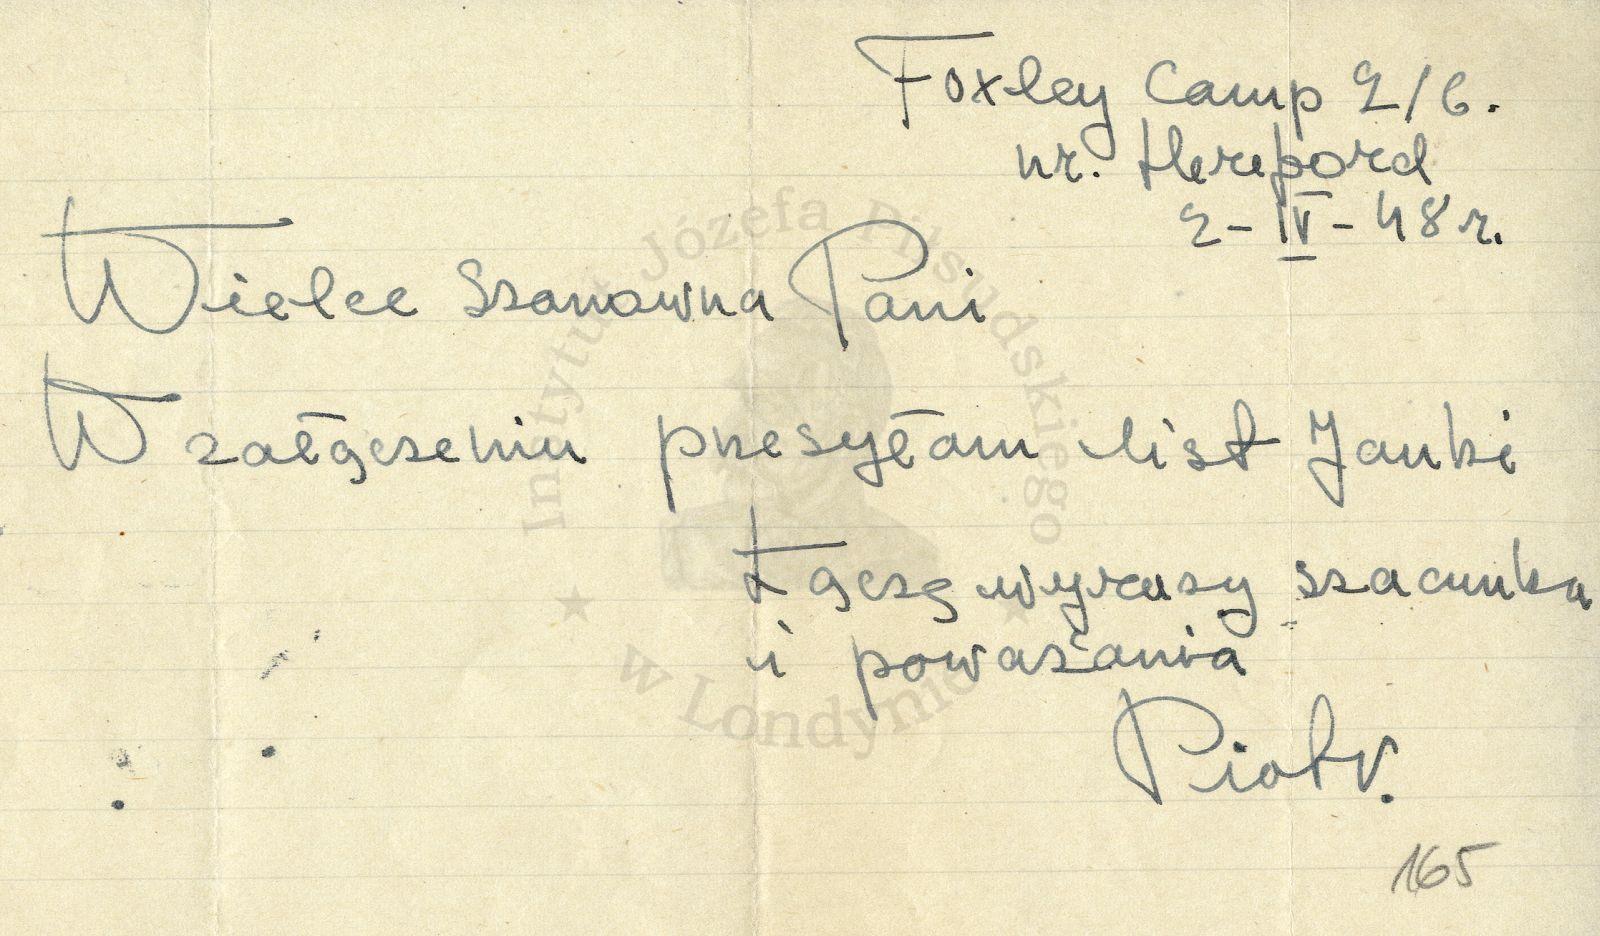 Foxley Camp 2/6.
nr. Hereford
2-IV-48 r.
Wielce Szanowna Pani
W załączeniu przesyłam list Janki
Łączę wyrazy szacunku
i poważania
Piotr.
165
Instytut Józefa Piłsudskiego
w Londynie